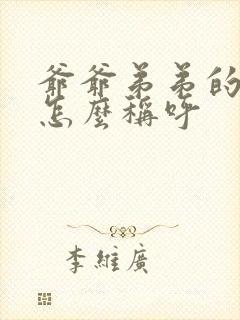 爺爺弟弟的
怎麼稱呼
李維廣